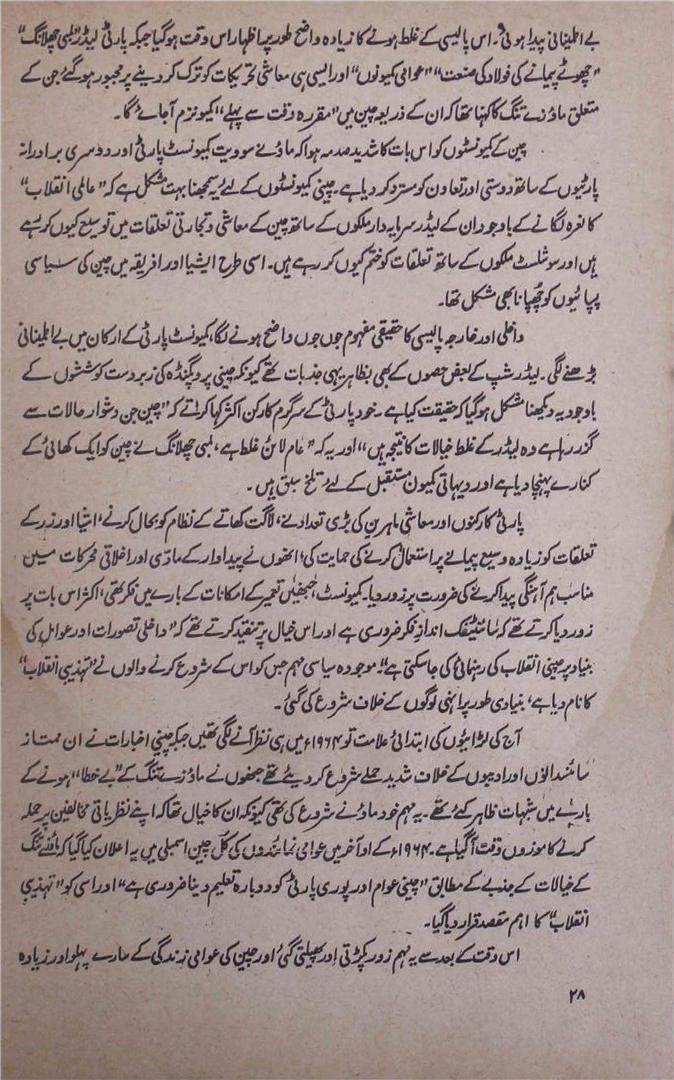 بے اطمینانی پیدا ہوئی۔ اس پالیسی کے غلط ہونے کا زیادہ واضح طور پر اظہار اس وقت ہوگیا جبکہ پارٹی لیڈر "لمبی چھلانگ"
"چھوٹے پیمانے کی فولاد کی صنعت" "عوامی کمیونوں" اور ایسی ہی معاشی تحریکات کو ترک کر دینے پر مجبور ہو گئے جن کے
متعلق ماؤزے تنگ کا کہنا تھا کہ ان کے ذریعہ چین میں "مقررہ وقت سے پہلے" کمیونزم آجائے گا۔
چین کے کمیونسٹوں کو اس بات کا شدید صدمہ ہوا کہ ماؤ نے سوویت کمیونسٹ پارٹی اور دوسری برادرانہ
پارٹیوں کے ساتھ دوستی اور تعاون کو مسترد کر دیا ہے۔ چینی کمیونسٹوں کے لئے یہ سمجھنا بہت مشکل ہے کہ "عالمی انقلاب"
کا نعرہ لگانے کے باوجود ان کے لیڈر سرمایہ دار ملکوں کے ساتھ چین کے معاشی و تجارتی تعلقات میں توسیع کیوں کر رہے
ہیں اور سوشلسٹ ملکوں کے ساتھ تعلقات کو ختم کیوں کر رہے ہیں۔ اسی طرح ایشیا اور افریقہ میں چین کی سیاسی
پسپائیوں کو چھپانا بھی مشکل تھا۔
داخلی اور خارجہ پالیسی کا حقیقی مفہوم جوں جوں واضح ہونے لگا، کمیونسٹ پارٹی کے ارکان میں بے اطمینانی
بڑھنے لگی۔ لیڈرشپ کے بعض حصوں کے بھی بظاہر یہی جذبات تھے کیونکہ چینی پروپگنڈہ کی زبردست کوششوں کے
باوجود یہ دیکھنا مشکل ہوگیا کہ حقیقت کیا ہے۔ خود پارٹی کے سرگرم کارکن اکثر کہا کرتے کہ "چین جن دشوار حالات سے
گزر رہا ہے وہ لیڈر کے غلط خیالات کا نتیجہ ہیں" اور یہ کہ "عام لائن غلط ہے، لمبی چھلانگ نے چین کو ایک کھائی کے
کنارے پہنچا دیا ہے اور دیہاتی کمیون مستقبل کے لئے تلخ سبق ہیں۔
پارٹی کارکنوں اور معاشی ماہرین کی بڑی تعداد نے، لاگت کھاتے کے نظام کو بحال کرنے، اشیا اور زر کے
تعلقات کو زیادہ وسیع پیمانے پر استعمال کرنے کی حمایت کی، انھوں نے پیداوار کے مادی اور اخلاقی محرکات میں
مناسب ہم آہنگی پیدا کرنے کی ضرورت پر زور دیا۔ کمیونسٹ، جنھیں تعمیر کے امکانات کے بارے میں فکر تھی، اکثر اس بات پر
زور دیا کرتے تھے کہ سائنٹیفک انداز فکر ضروری ہے اور اس خیال پر تنقید کرتے تھے کہ "داخلی تصورات اور عوامل کی
بنیاد پر چینی انقلاب کی رہنمائی کی جاسکتی ہے"۔ موجودہ سیاسی مہم جس کو اس کے شروع کرنے والوں نے "تہذیبی انقلاب"
کا نام دیا ہے، بنیادی طور پر انہی لوگوں کے خلاف شروع کی گئی۔
آج کی لڑائیوں کی ابتدائی علامت تو ۱۹۶۴ء میں ہی نظر آنے لگی تھیں جبکہ چینی اخبارات نے ان ممتاز
سائنسدانوں اور ادیبوں کے خلاف شدید حملے شروع کر دیئے تھے جنھوں نے ماؤزے تنگ کے "بے خطا" ہونے کے
بارے میں شبہات ظاہر کئے تھے۔ یہ مہم خود ماؤ نے شروع کی تھی کیونکہ ان کا خیال تھا کہ اپنے نظریاتی مخالفین پر حملہ
کرنے کا موزوں وقت آگیا ہے۔ ۱۹۶۴ء کے اواخر میں عوامی نمائندوں کی کل چین اسمبلی میں یہ اعلان کیا گیا کہ ماؤزے تنگ
کے خیالات کے جذبے کے مطابق "چینی عوام اور پوری پارٹی کو دوبارہ تعلیم دینا ضروری ہے" اور اسی کو "تہذیبی
انقلاب" کا اہم مقصد قرار دیا گیا۔
اس وقت کے بعد سے یہ مہم زور پکڑتی اور پھیلتی گئی اور چین کی عوامی زندگی کے سارے پہلو اور زیادہ
۲۸